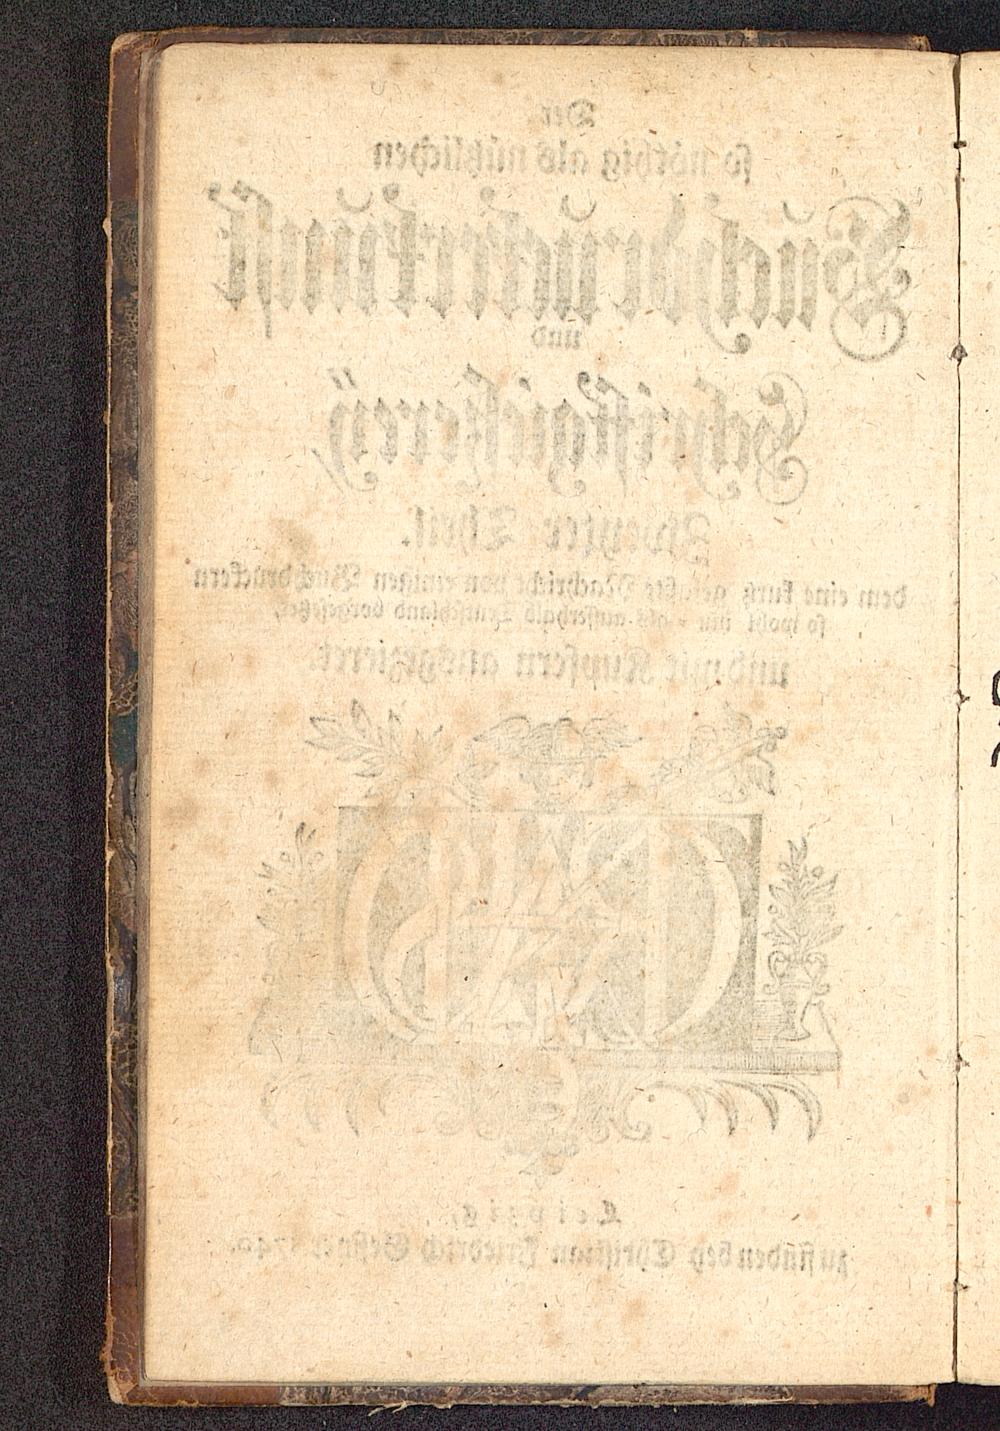 Der
so nöthig als nützlichen
Buchdruckerkunst
und
Schriftgießerey,
Zweyter Theil.
dem eine kurtz gefaßte Nachricht von einigen Buchdruckern
so wohl inn - als ausserhalb Teutschland vorgesetzet,
und mit Kupfern ausgezieret.
Leipzig,
zu finden bey Christian Friedrich Geßner 1740.